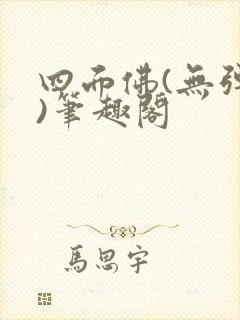 四面佛(無彈
)筆趣閣
馬思宇